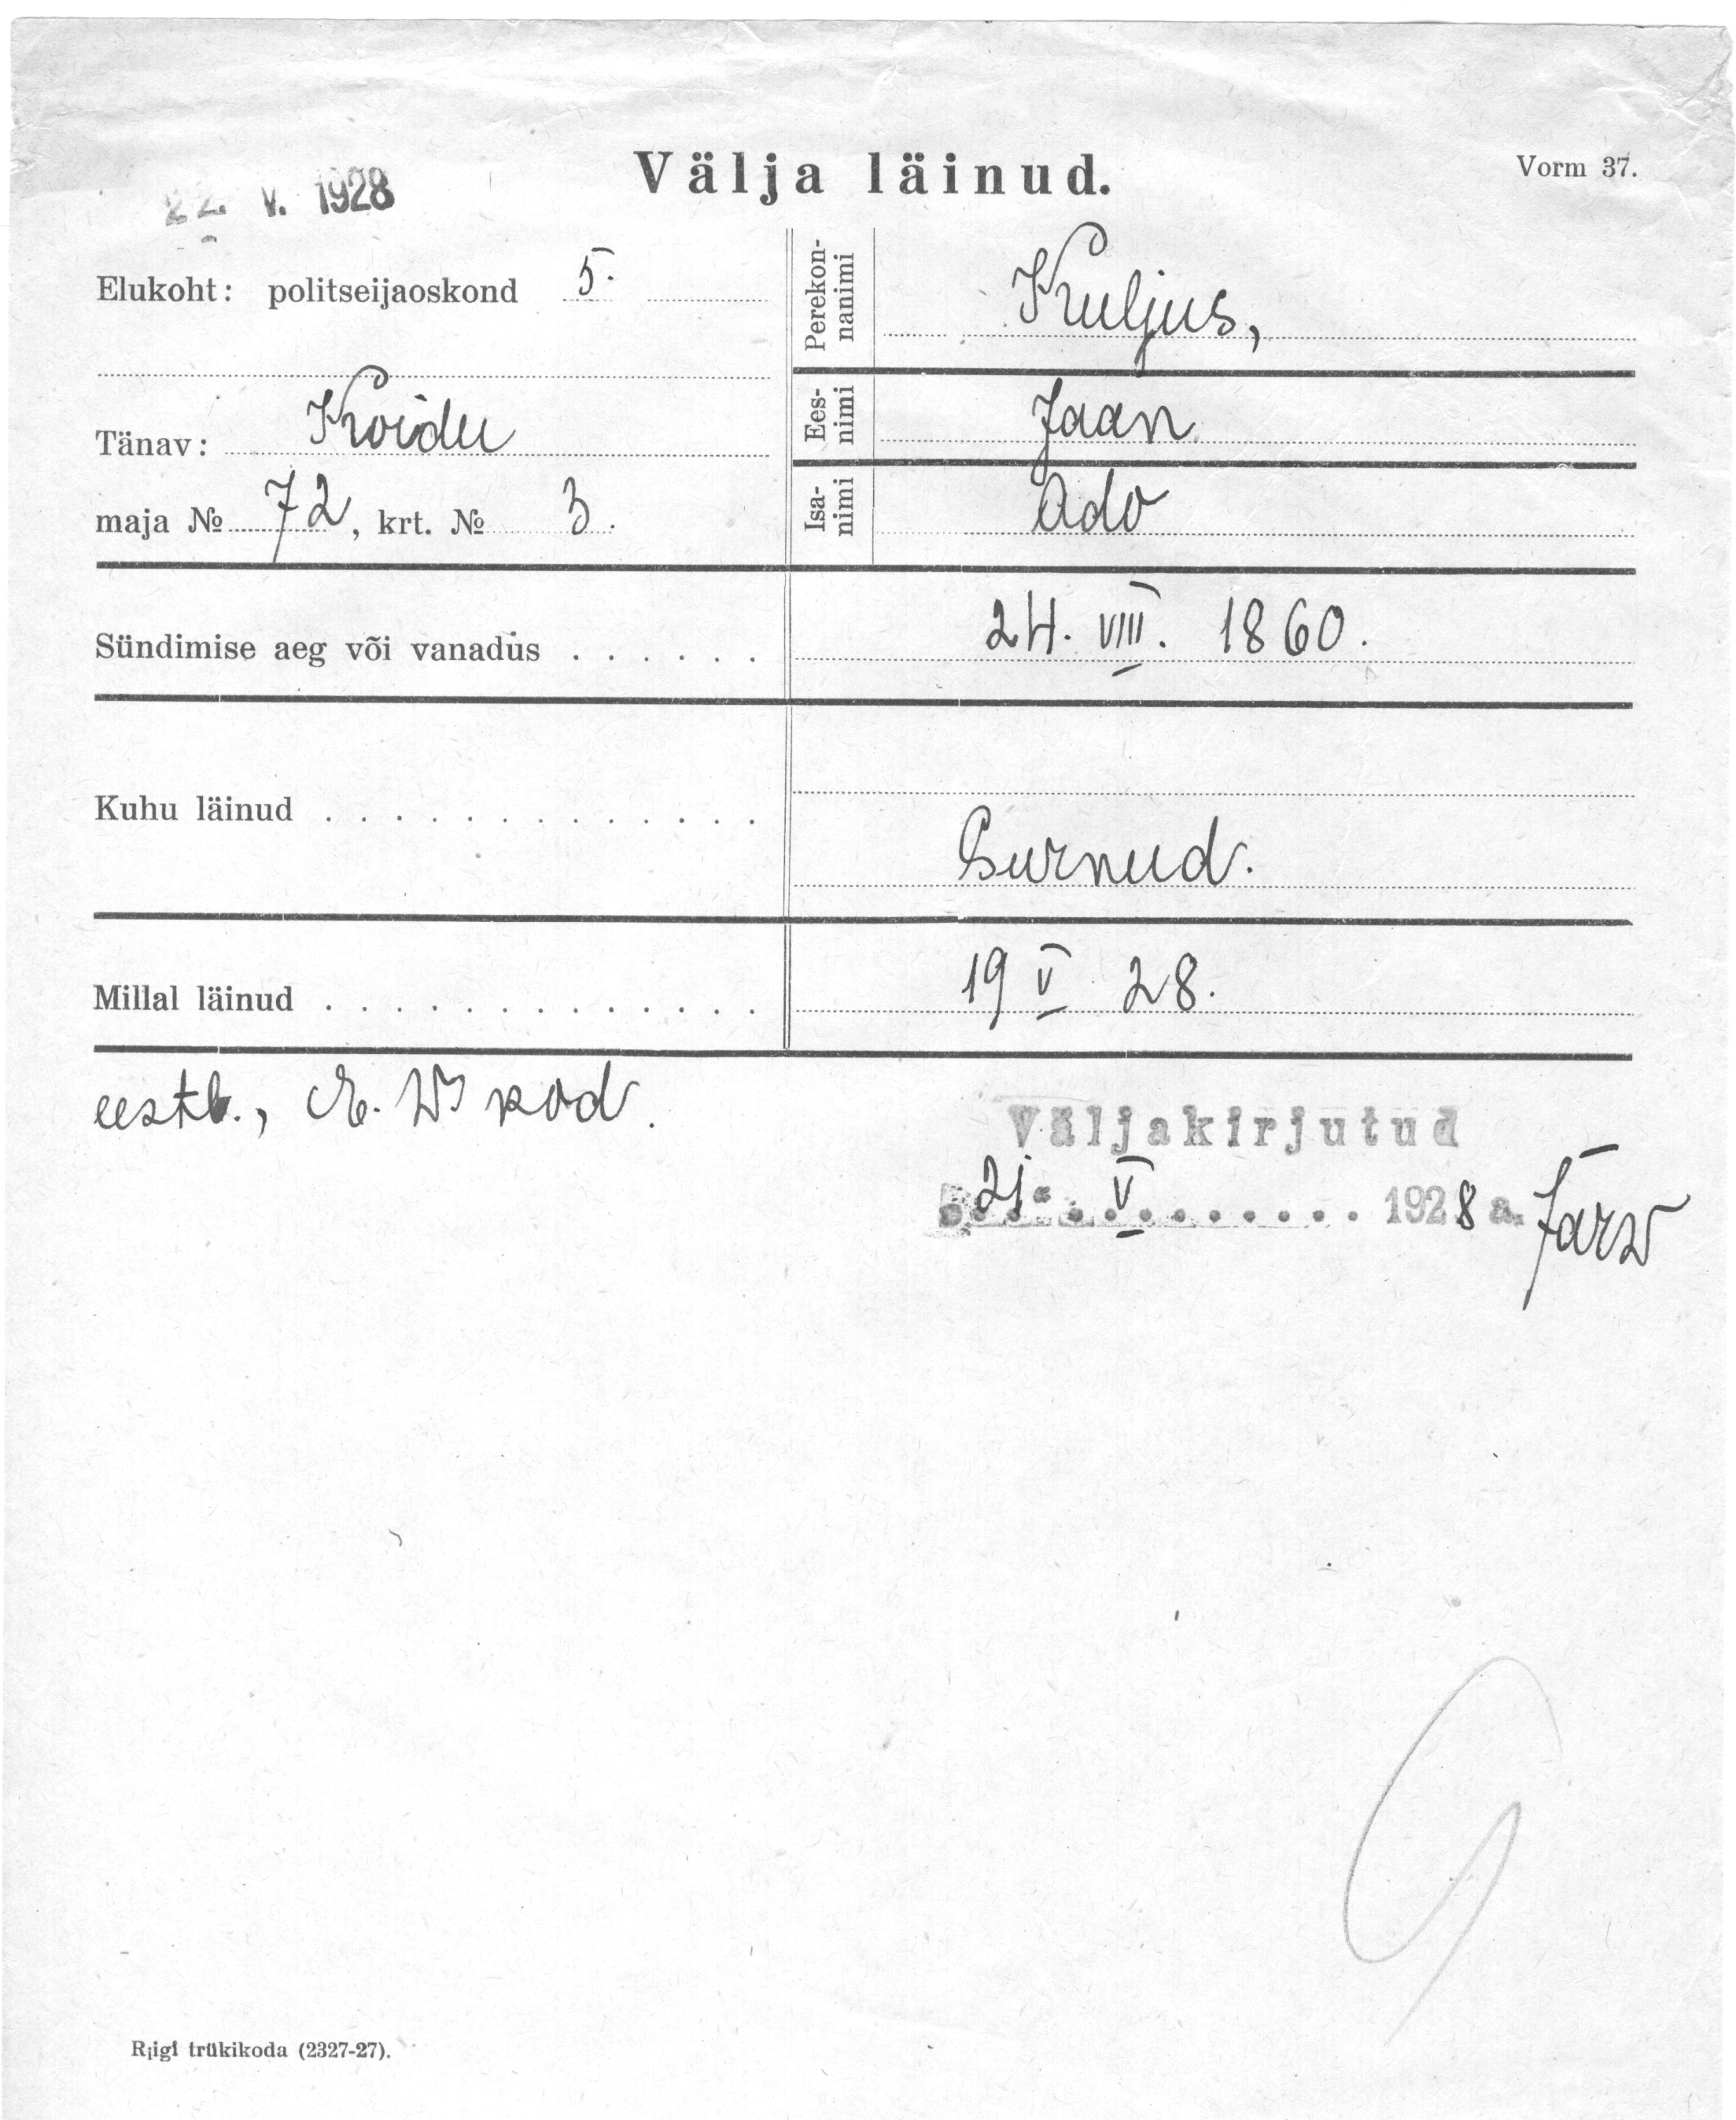 Välja läinud.
Vorm 37.
22. V. 1928
Elukoht: politseijaoskond 5.
Tänav: Koidu
maja № 72, krt. № 3.
Perekon-
nanimi
Kuljus,
Ees-
nimi
Jaan
Isa-
nimi
Ado
Sündimise aeg või vanadus . . . . . .
24. VIII. 1860.
Kuhu läinud . . . . . . . . . . . . .
Surnud.
Millal läinud . . . . . . . . . . . . .
19 V 28.
eestl., E. W. kod.
Väljakirjutud
21. V. 1928 a. Järw
Riigi trükikoda (2327-27).